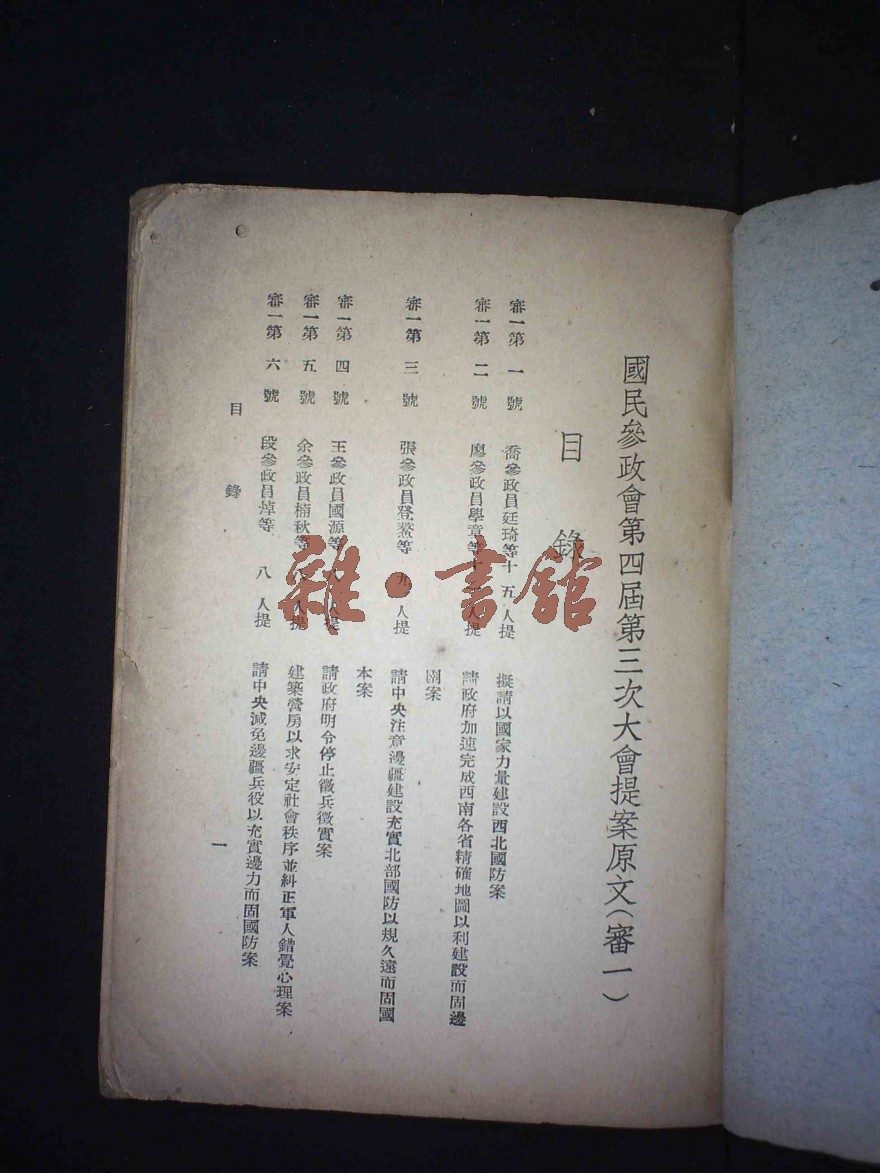 國民參政會第四屆第三次大會提案原文（審一）
目錄
審一第一號 喬參政員廷琦等十五人提 擬請以國家力量建設西北國防案
審一第二號 廖參政員學章等十人提 請政府加速完成西南各省精確地圖以利建設而固邊
圉案
審一第三號 張參政員登鰲等九人提 請中央注意邊疆建設充實北部國防以規久遠而固國
本案
審一第四號 王參政員國源等人提 請政府明令停止徵兵徵實案
審一第五號 余參政員楠秋等八人提 建築營房以求安定社會秩序並糾正軍人錯覺心理案
審一第六號 段參政員焯等八人提 請中央減免邊疆兵役以充實邊力而固國防案
目錄 一
雜·書館